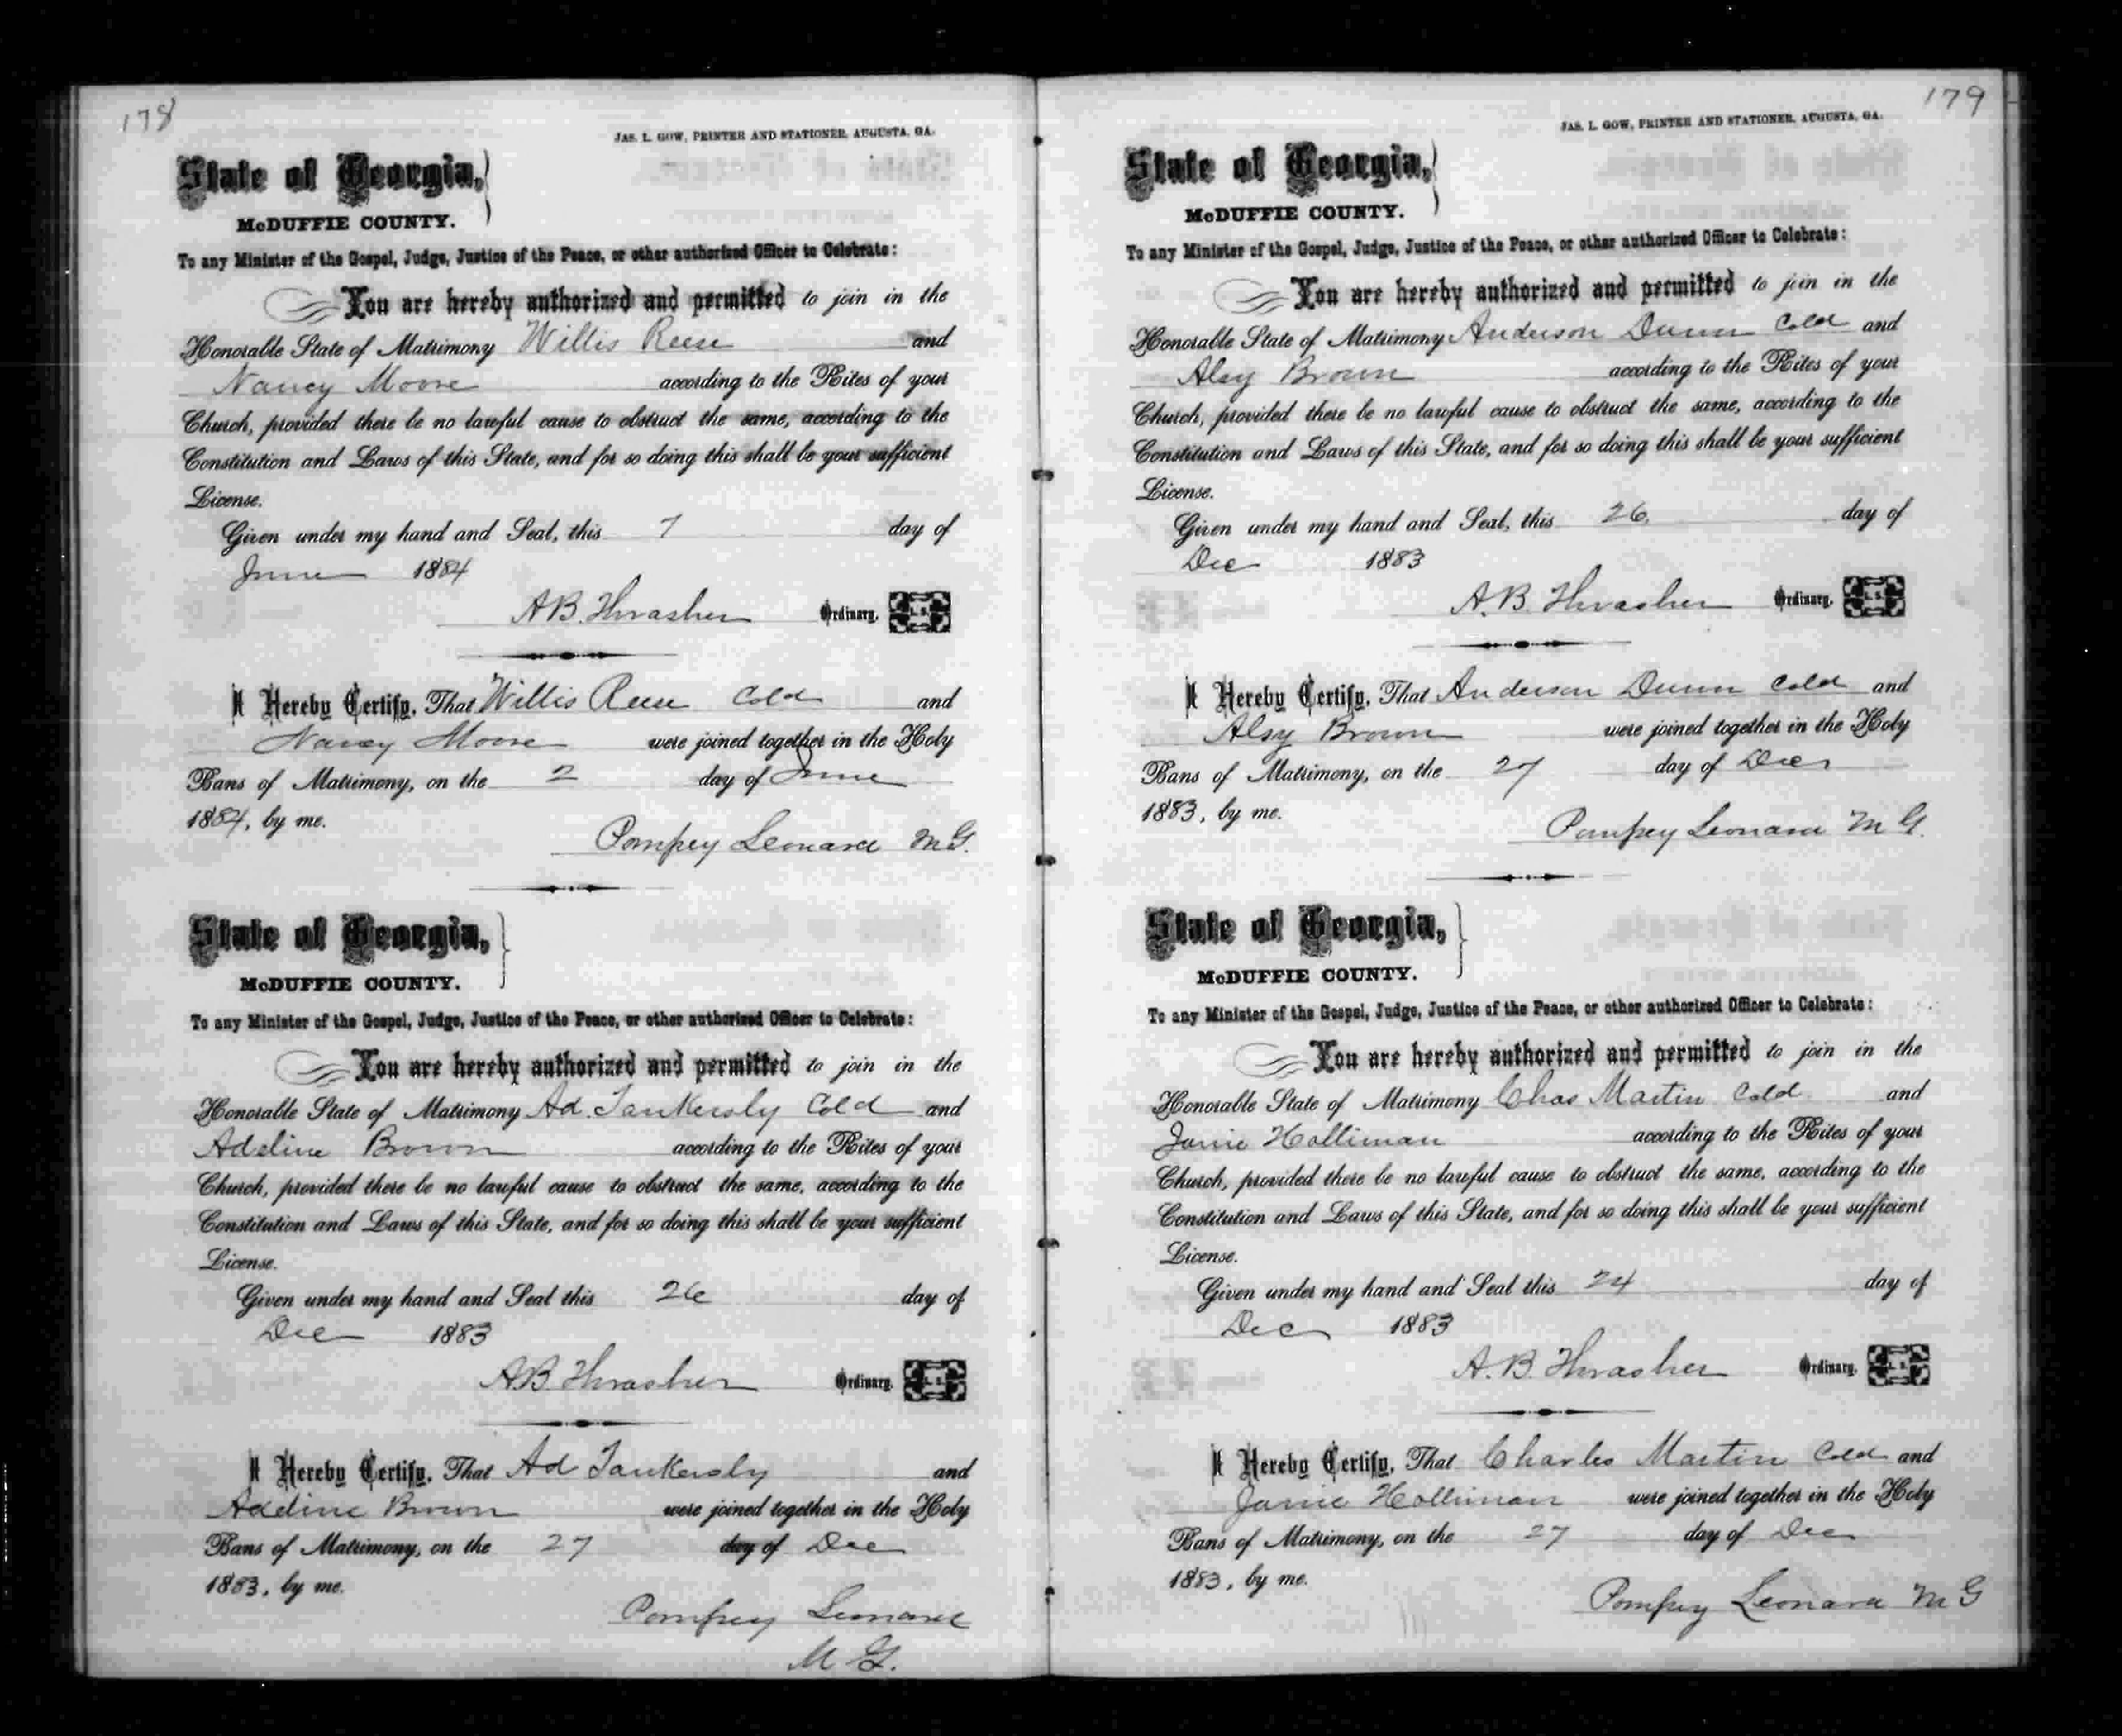 178
JAS. L. GOW, PRINTER AND STATIONER, AUGUSTA, GA.
State of Georgia,
McDUFFIE COUNTY.
To any Minister of the Gospel, Judge, Justice of the Peace, or other authorized Officer to Celebrate:
You are hereby authorized and permitted to join in the
Honorable State of Matrimony Willis Reese and
Nancy Moore according to the Rites of your
Church, provided there be no lawful cause to obstruct the same, according to the
Constitution and Laws of this State, and for so doing this shall be your sufficient
License.
Given under my hand and Seal, this 7 day of
June 1884
A.B. Thrasher Ordinary. L. S.
I Hereby Certify, That Willis Reese Cold and
Nancy Moore were joined together in the Holy
Bans of Matrimony, on the 2 day of June
1884, by me.
Pompey Leonard M.G.
State of Georgia,
McDUFFIE COUNTY.
To any Minister of the Gospel, Judge, Justice of the Peace, or other authorized Officer to Celebrate:
You are hereby authorized and permitted to join in the
Honorable State of Matrimony Ad. Tankersly Cold and
Adeline Brown according to the Rites of your
Church, provided there be no lawful cause to obstruct the same, according to the
Constitution and Laws of this State, and for so doing this shall be your sufficient
License.
Given under my hand and Seal this 26 day of
Dec 1883
A.B. Thrasher Ordinary. L. S.
I Hereby Certify, That Ad Tankersly and
Adeline Brown were joined together in the Holy
Bans of Matrimony, on the 27 day of Dec
1883, by me.
Pompey Leonard
M G.
179
JAS. L. GOW, PRINTER AND STATIONER, AUGUSTA, GA.
State of Georgia,
McDUFFIE COUNTY.
To any Minister of the Gospel, Judge, Justice of the Peace, or other authorized Officer to Celebrate:
You are hereby authorized and permitted to join in the
Honorable State of Matrimony Anderson Dunn Cold and
Alsy Brown according to the Rites of your
Church, provided there be no lawful cause to obstruct the same, according to the
Constitution and Laws of this State, and for so doing this shall be your sufficient
License.
Given under my hand and Seal, this 26 day of
Dec 1883
A.B. Thrasher Ordinary. L. S.
I Hereby Certify, That Anderson Dunn Cold and
Alsy Brown were joined together in the Holy
Bans of Matrimony, on the 27 day of Dec
1883, by me.
Pompey Leonard M G.
State of Georgia,
McDUFFIE COUNTY.
To any Minister of the Gospel, Judge, Justice of the Peace, or other authorized Officer to Celebrate:
You are hereby authorized and permitted to join in the
Honorable State of Matrimony Chas Martin Cold and
Janie Holliman according to the Rites of your
Church, provided there be no lawful cause to obstruct the same, according to the
Constitution and Laws of this State, and for so doing this shall be your sufficient
License.
Given under my hand and Seal this 24 day of
Dec 1883
A.B. Thrasher Ordinary. L. S.
I Hereby Certify, That Charles Martin Cold and
Janie Holliman were joined together in the Holy
Bans of Matrimony, on the 27 day of Dec
1883, by me.
Pompey Leonard M G